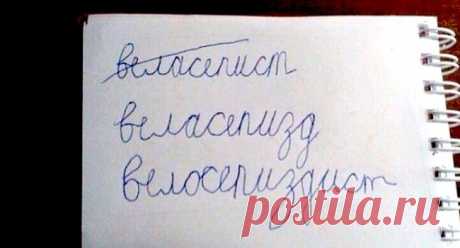 веласепист
веласепизд
велосепиздист
postila.ru